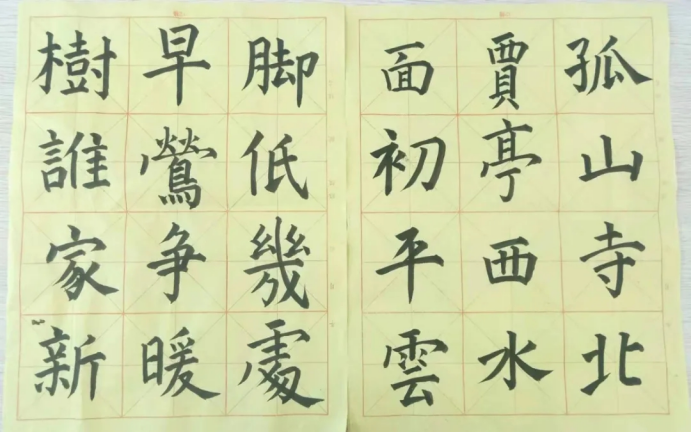 孤山寺北
賈亭西水
面初平雲
脚低幾處
早鶯争暖
樹誰家新